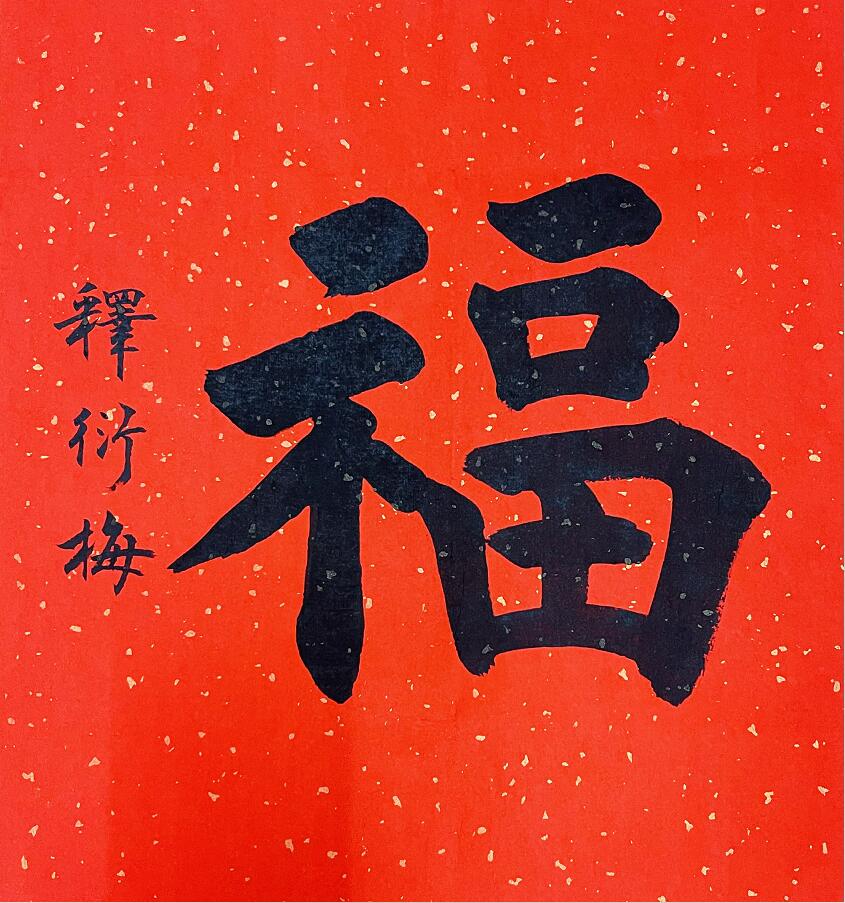 福
釋衍梅